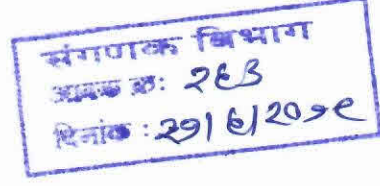 संगणक विभाग
आवक क्र: २६३
दिनांक: २९/६/२०१९